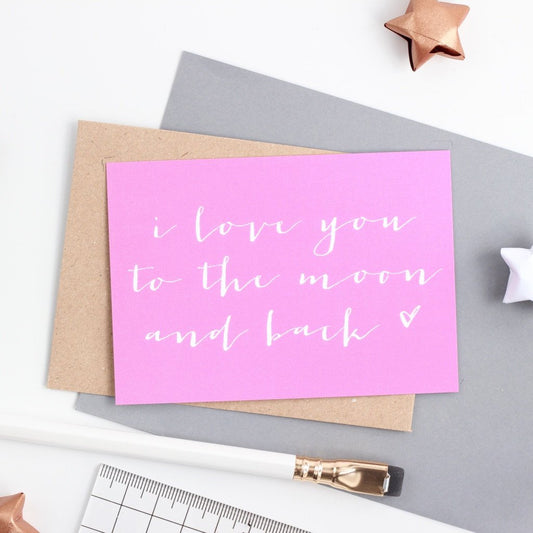 i love you
to the moon
and back ♡